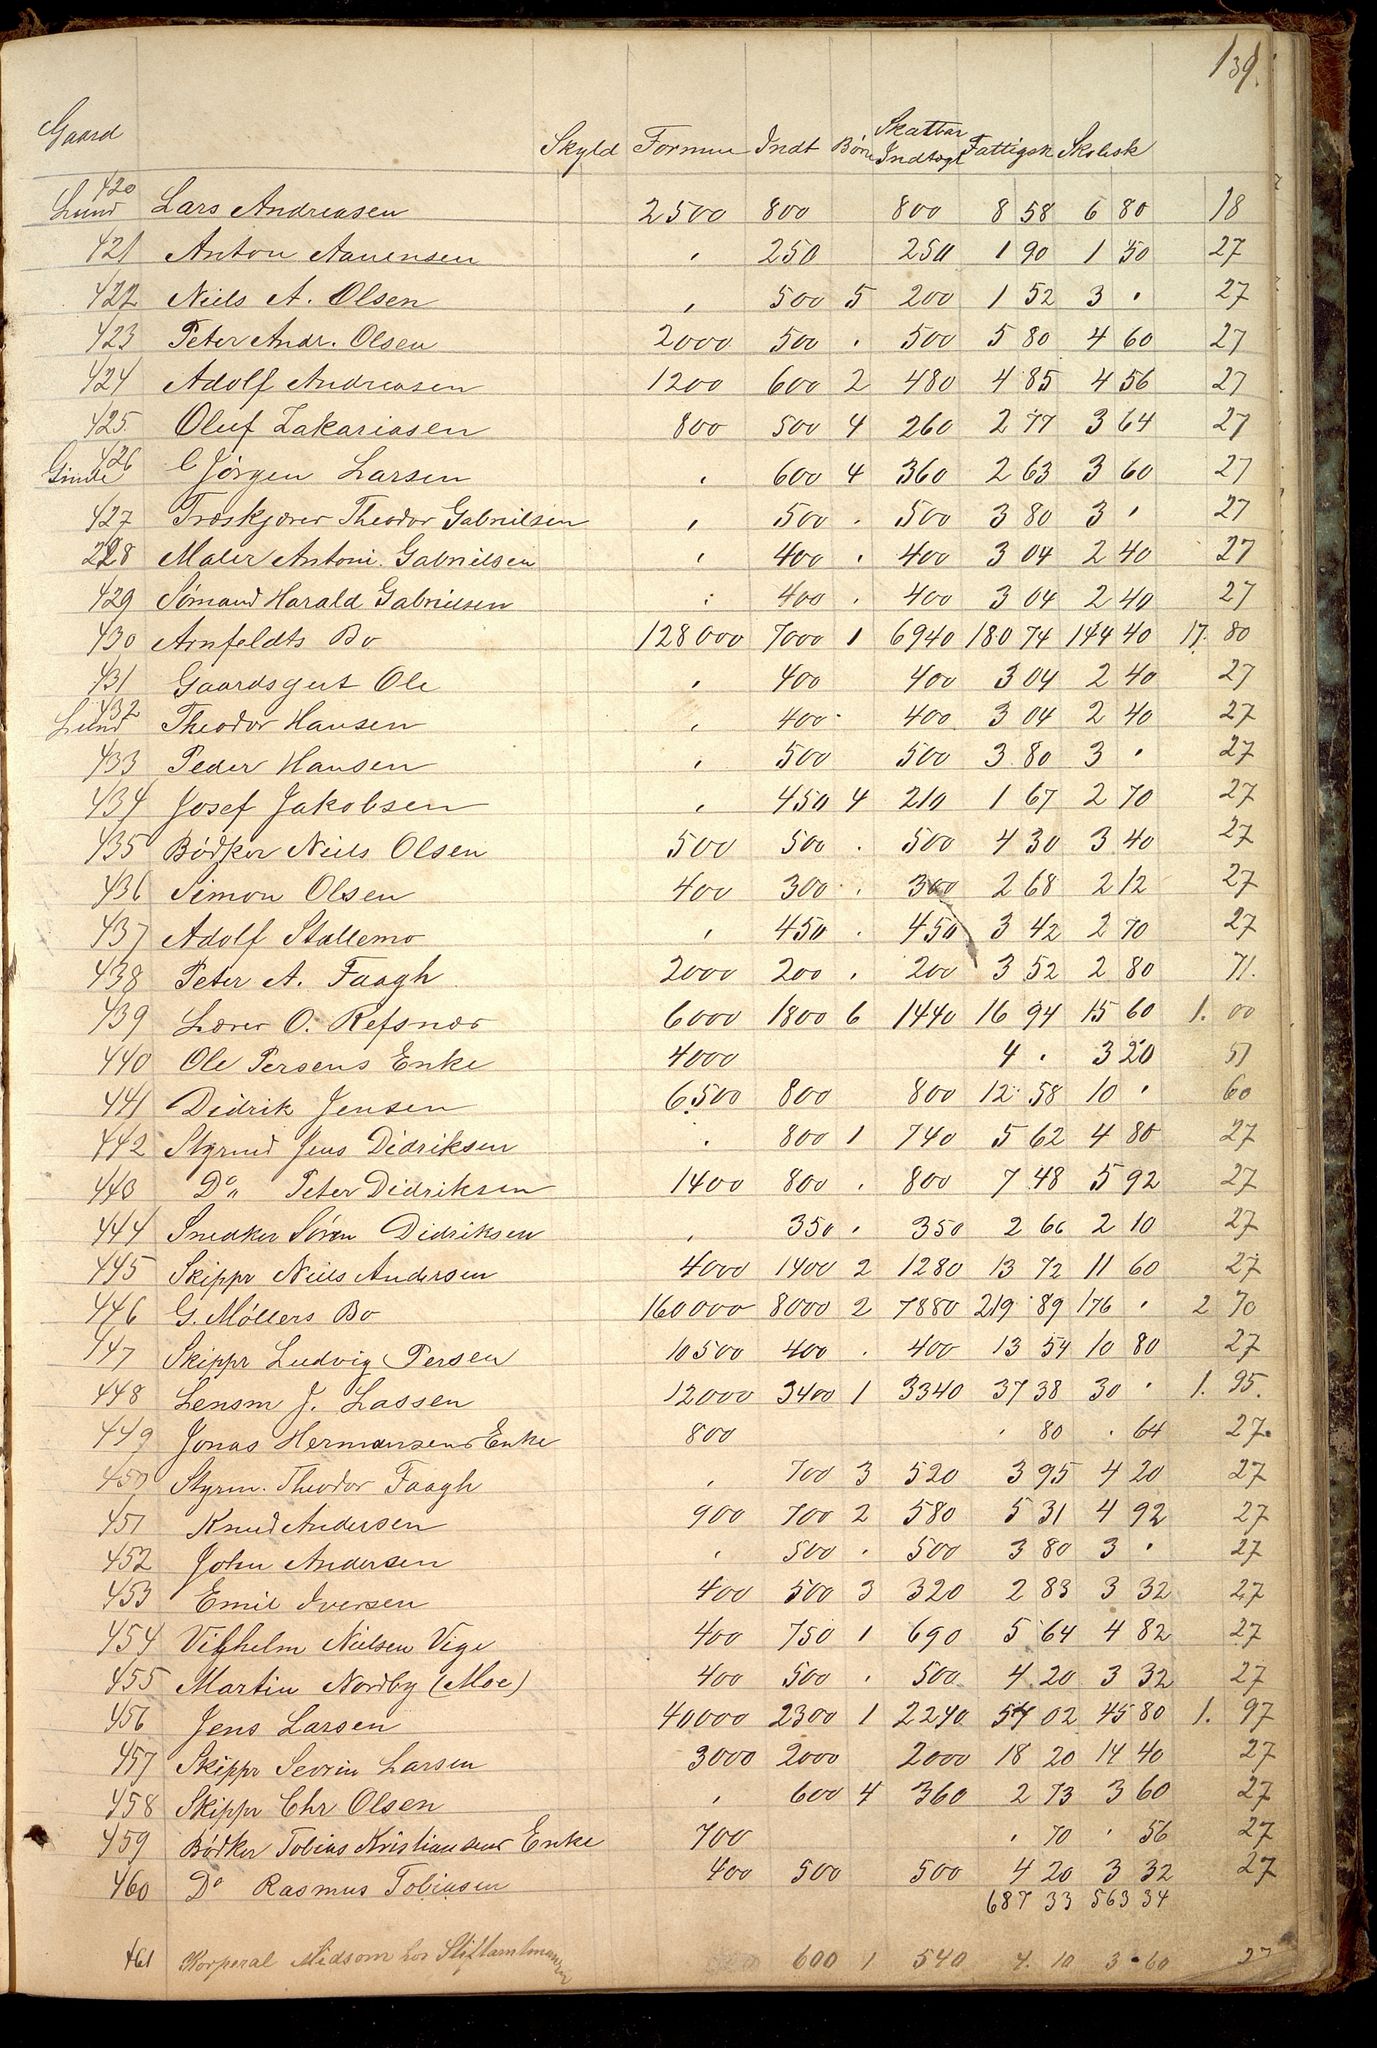 139.
Gaard Skyld Formue Indt Børn Skatbar Indtægt Fattigsk Skolesk
Lund 420 Lars Andreasen 2500 800 800 8 58 6 80 18
421 Anton Aanensen , 250 250 1 90 1 50 27
422 Niels A. Olsen , 500 5 200 1 52 3 . 27
423 Peter Andr. Olsen 2000 500 . 500 5 80 4 60 27
424 Adolf Andreasen 1200 600 2 480 4 85 4 56 27
425 Oluf Zakariasen 800 500 4 260 2 77 3 64 27
Gimle 426 C Jörgen Larsen , 600 4 360 2 63 3 60 27
427 Træskjærer Theodor Gabrielsen , 500 . 500 3 80 3 . 27
428 Maler Antoni Gabrielsen , 400 . 400 3 04 2 40 27
429 Sömand Harald Gabrielsen : 400 . 400 3 04 2 40 27
430 Arnfeldts Bo 128000 7000 1 6940 180 74 144 40 17. 80
431 Gaardsgut Ole , 400 400 3 04 2 40 27
Lund 432 Theodor Hansen , 400 400 3 04 2 40 27
433 Peder Hansen , 500 500 3 80 3 . 27
434 Josef Jakobsen , 450 4 210 1 67 2 70 27
435 Bödker Niels Olsen 500 500 . 500 4 30 3 40 27
436 Simon Olsen 400 300 . 300 2 68 2 12 27
437 Adolf Stallemo , 450 . 450 3 42 2 70 27
438 Peter A. Faagh 2000 200 . 200 3 52 2 80 71.
439 Lærer O. Refsnæs 6000 1800 6 1440 16 94 15 60 1. 00
440 Ole Persens Enke 4000 4 . 3 20 51
441 Didrik Jensen 6500 800 800 12 58 10 . 60
442 Styrmd Jens Didriksen . 800 1 740 5 62 4 80 27
443 Do " Peter Didriksen 1400 800 . 800 7 48 5 92 27
444 Snedker Sören Didriksen , 350 . 350 2 66 2 10 27
445 Skippr Niels Andersen 4000 1400 2 1280 13 72 11 60 27
446 G. Möllers Bo 160000 8000 2 7880 219 89 176 . 2 70
447 Skippr Ludvig Persen 10500 400 . 400 13 54 10 80 27
448 Lensm J. Lassen 12000 3400 1 3340 37 38 30 . 1. 95.
449 Jonas Hermansens Enke 800 . 80 . 64 27.
450 Styrm. Theodor Faagh , 700 3 520 3 95 4 20 27
451 Knud Andersen 900 700 2 580 5 31 4 92 27
452 John Andersen , 500 . 500 3 80 3 . 27
453 Emil Iversen 400 500 3 320 2 83 3 32 27
454 Vilhelm Nielsen Vige 400 750 1 690 5 64 4 82 27
455 Martin Nordby (Moe) 400 500 . 500 4 20 3 32 27
456 Jens Larsen 40000 2300 1 2240 57 02 45 80 1. 97
457 Skippr Sevrin Larsen 3000 2000 2000 18 20 14 40 27
458 Skippr Chr Olsen , 600 4 360 2 73 3 60 27
459 Bödker Tobias Kristiansens Enke 700 . 70 . 56 27
460 Do Rasmus Tobiasen 400 500 500 4 20 3 32 27
687 33 563 34
461 Korporal Midsom hos Stiftamtmanden 600 1 540 4. 10 3.60 27